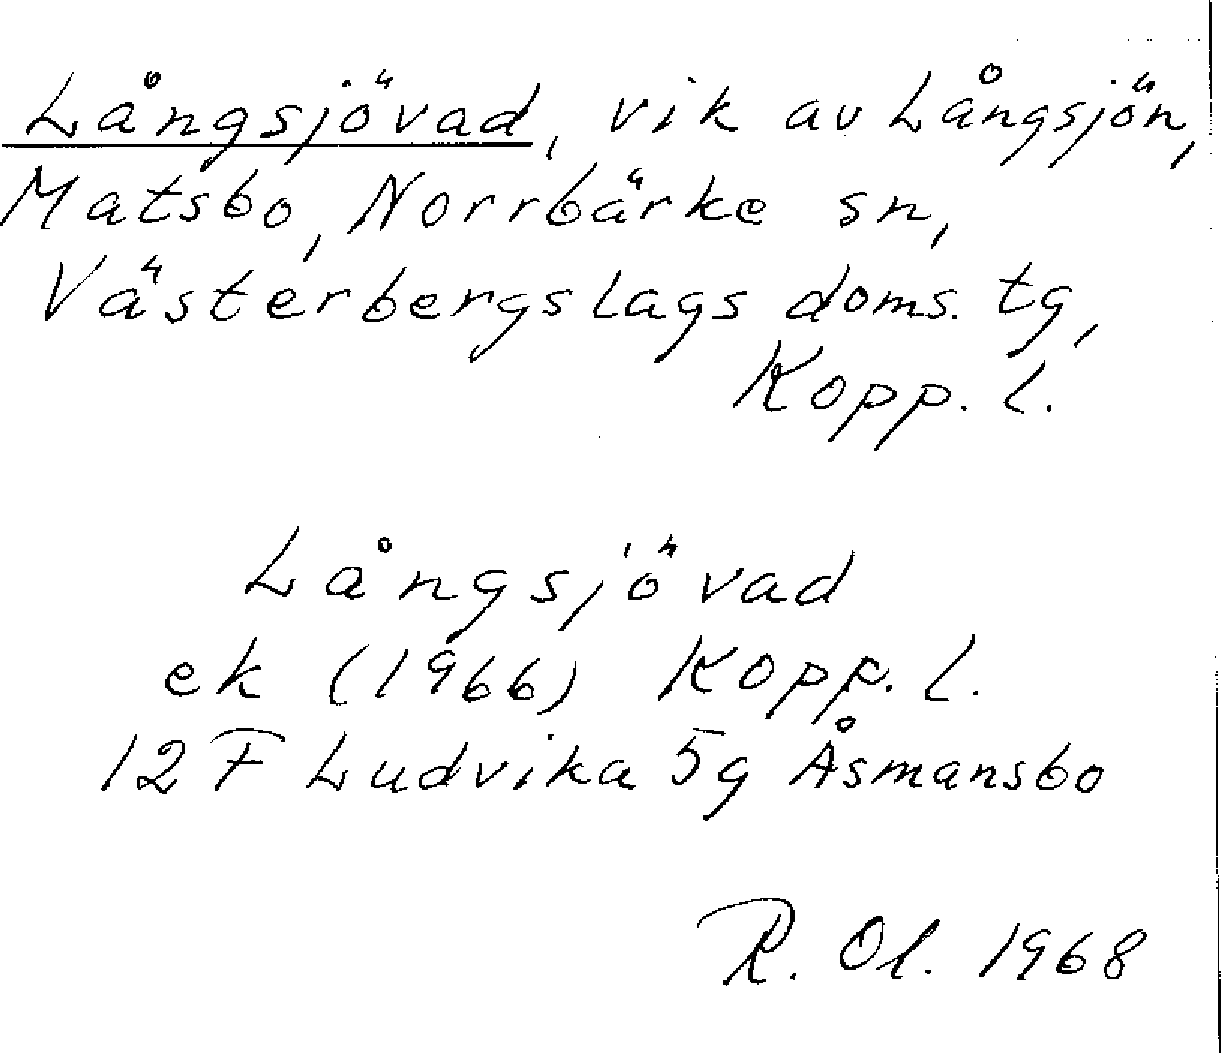 Långsjövad, vik av Långsjön,
Matsbo, Norrbärke sn,
Västerbergslags doms. tg,
Kopp. l.
Långsjövad
ek (1966) Kopp. l.
12 F Ludvika 5g Åsmansbo
R. Ol. 1968